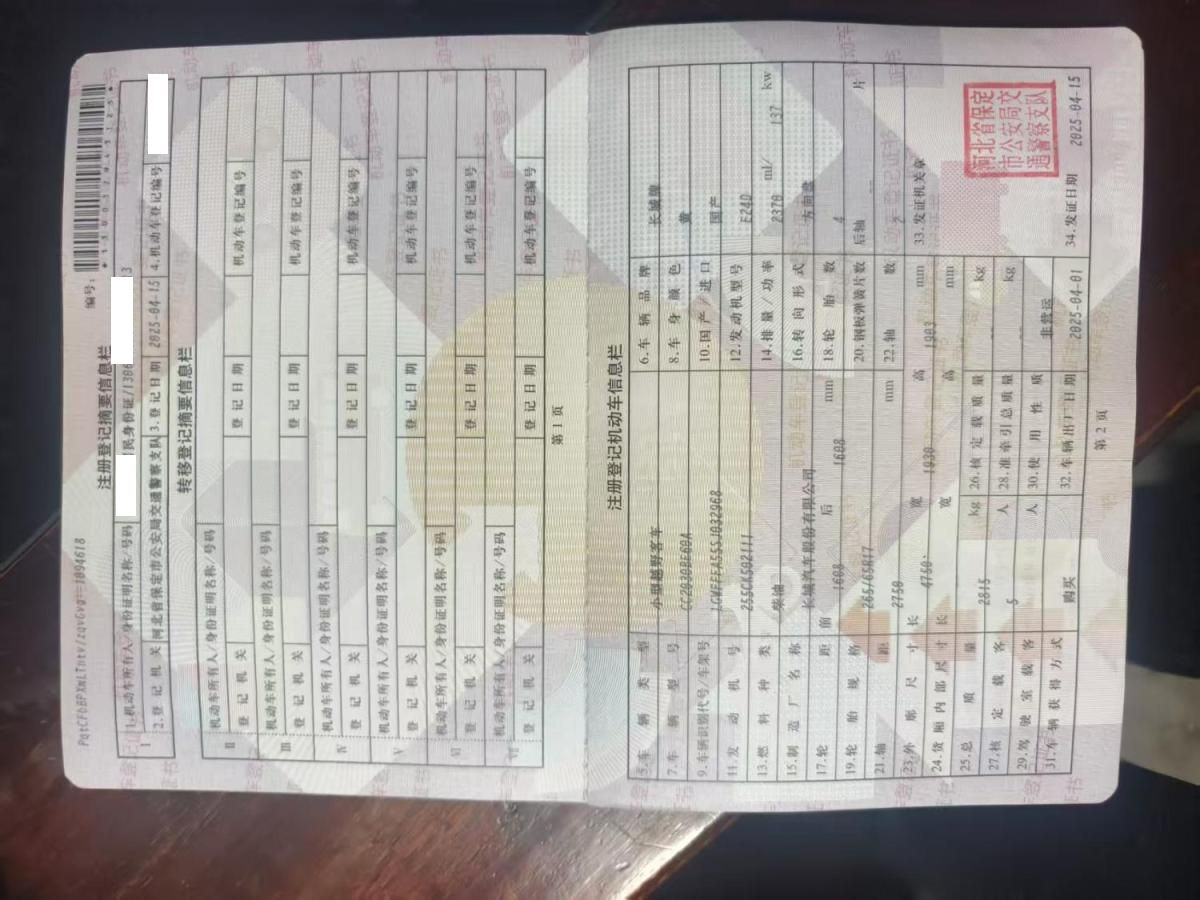 PqtCFbBPXmLTntv/zqvGvg==1094618
编号:
注册登记摘要信息栏
I 1.机动车所有人/身份证明名称/号码 民身份证/1306
2.登记机关 河北省保定市公安局交通警察支队 3.登记日期 2025-04-15 4.机动车登记编号
转移登记摘要信息栏
II 机动车所有人/身份证明名称/号码
登记机关 登记日期 机动车登记编号
III 机动车所有人/身份证明名称/号码
登记机关 登记日期 机动车登记编号
IV 机动车所有人/身份证明名称/号码
登记机关 登记日期 机动车登记编号
V 机动车所有人/身份证明名称/号码
登记机关 登记日期 机动车登记编号
VI 机动车所有人/身份证明名称/号码
登记机关 登记日期 机动车登记编号
VII 机动车所有人/身份证明名称/号码
登记机关 登记日期 机动车登记编号
第1页
注册登记机动车信息栏
5.车辆类型 小型越野客车 6.车辆品牌 长城牌
7.车辆型号 8.车身颜色 黄
9.车辆识别代号/车架号 10.国产/进口 国产
11.发动机号 255CK502111 12.发动机型号 E24D
13.燃料种类 柴油 14.排量/功率 2370 ml/ 137 kw
15.制造厂名称 长城汽车股份有限公司 16.转向形式 方向盘
17.轮距 前 1608 后 1608 mm 18.轮胎数 4
19.轮胎规格 265/65R17 20.钢板弹簧片数 后轴 -- 片
21.轴距 2750 mm 22.轴数 2
23.外廓尺寸 长 4760 宽 1930 高 1903 mm 33.发证机关章
24.货厢内部尺寸 长 宽 高 mm
25.总质量 2815 kg 26.核定载质量 -- kg
27.核定载客 5 人 28.准牵引总质量 -- kg
29.驾驶室载客 人 30.使用性质 非营运
31.车辆获得方式 购买 32.车辆出厂日期 2025-04-01 34.发证日期 2025-04-15
河北省保定
市公安局交
通警察支队
第2页